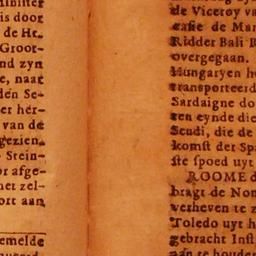 is door
de Hr.
Groot-
nd zyn
e, naar
den Se-
er her-
van de
gezien.
Stein-
or afge-
het zel-
ort aan
emelde
de Viceroy va
de Mar
Ridder Bali R
overgegaan.
Hungaryen h
transporteerd
Sardaigne do
ten eynde die
Scudi, die de
komst der Spa
ste spoed uyt
ROOME d
bragt de Non
verheven te z
Toledo uyt h
gebracht Inst
aan te houden